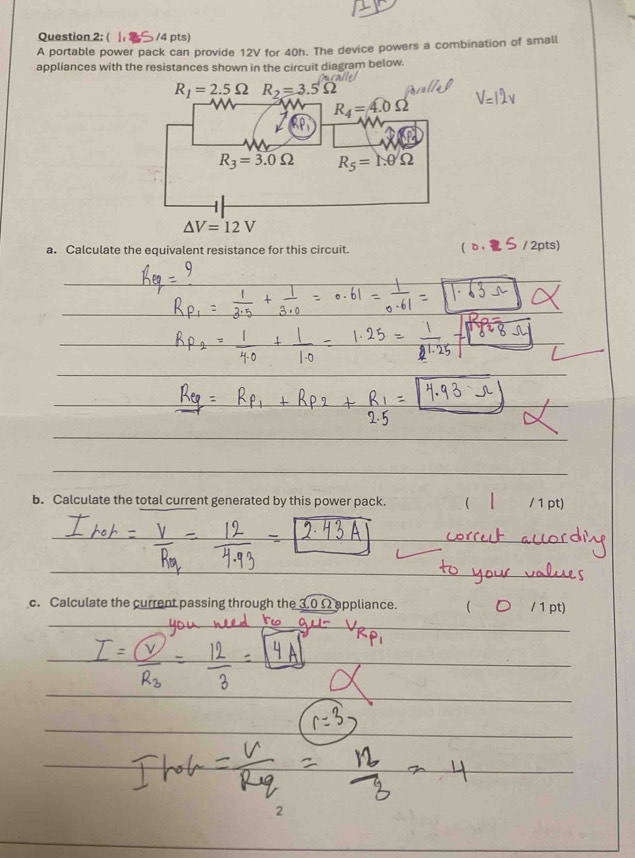 Question 2: ( 1.25 /4 pts)
A portable power pack can provide 12V for 40h. The device powers a combination of small
appliances with the resistances shown in the circuit diagram below.
parallel
R₁ = 2.5 Ω R₂ = 3.5 Ω
parallel
R₄ = 4.0 Ω
V=12v
RP₁
RP₂
R₃ = 3.0 Ω R₅ = 1.0 Ω
ΔV = 12 V
a. Calculate the equivalent resistance for this circuit. ( 0.25 / 2pts)
Req = ?
RP₁ = 1/3.5 + 1/3.0 = 0.61 = 1/0.61 = 1.63 Ω
RP₂ = 1/4.0 + 1/1.0 = 1.25 = 1/1.25 = 0.8 Ω
Req = RP₁ + RP₂ + R₁ = 4.93 Ω
2.5
b. Calculate the total current generated by this power pack. ( 1 / 1 pt)
I tot = V/Req = 12/4.93 = 2.43 A
correct according
to your values
c. Calculate the current passing through the 3.0 Ω appliance. ( 0 / 1 pt)
you need to get VRP₁
I = V/R₃ = 12/3 = 4 A
r=3
I tot = V/Req = 12/3 = 4
2